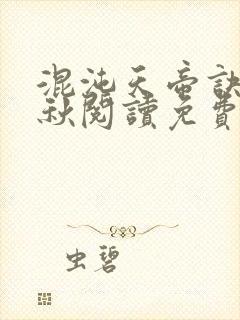 混沌天帝訣
秋閱讀免費
虫碧